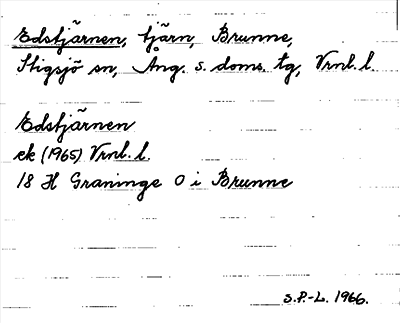 Edstjärnen, tjärn, Brunne,
Stigsjö sn, Ång. s. doms. tg, Vrnl. l.
Edstjärnen
ek (1965) Vrnl. l.
18 H Graninge O i Brunne
S.P.-L. 1966.